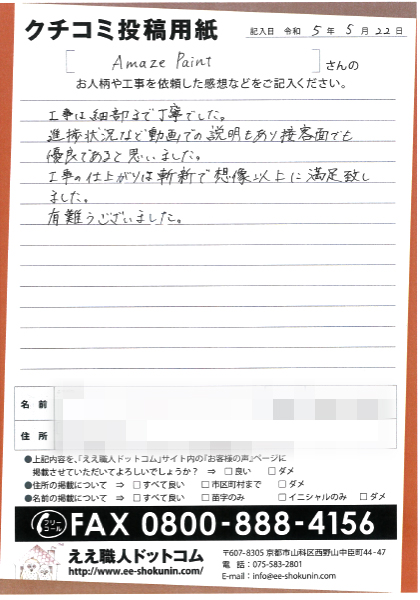 クチコミ投稿用紙
記入日 令和 5年 5月 22日
[ Amaze Paint ] さんの
お人柄や工事を依頼した感想などをご記入ください。
工事は細部まで丁寧でした。
進捗状況など動画での説明もあり接客面でも
優良であると思いました。
工事の仕上がりは斬新で想像以上に満足致し
ました。
有難うございました。
名前
住所
●上記内容を、「ええ職人ドットコム」サイト内の「お客様の声」ページに
掲載させていただいてよろしいでしょうか? ⇒ □良い □ダメ
●住所の掲載について ⇒ □すべて良い □市区町村まで □ダメ
●名前の掲載について ⇒ □すべて良い □苗字のみ □イニシャルのみ □ダメ
フリーコール FAX 0800-888-4156
ええ職人ドットコム
http://www.ee-shokunin.com/
〒607-8305 京都市山科区西野山中臣町44-47
電話:075-583-2801
E-mail:info@ee-shokunin.com